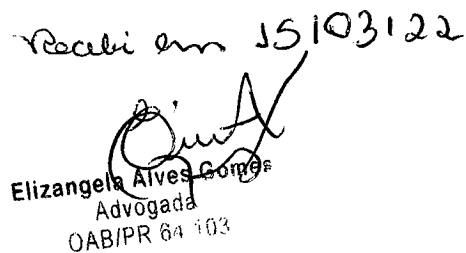 Recebi em 15/03/22
Elizangela Alves Gomes
Advogada
OAB/PR 64 103